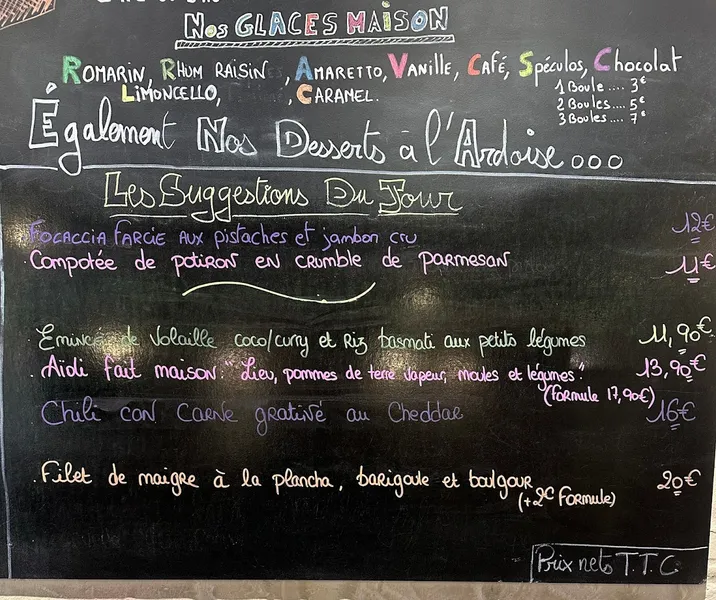 Nos GLACES MAISON
ROMARIN, RHUM RAISIN, AMARETTO, VANILLE, CAFÉ, SPÉCULOS, CHOCOLAT
LIMONCELLO, CARAMEL.
1 Boule .... 3€
2 Boules .... 5€
3 Boules .... 7€
Également Nos Desserts à l'Ardoise ooo
Les Suggestions Du Jour
FOCACCIA FARCIE AUX pistaches et jambon cru 12€
.Compotée de potiron en crumble de parmesan 11€
Emincé de Volaille coco/curry et Riz basmati aux petits légumes 11,90€
. Aïoli fait maison "Lieu, pommes de terre vapeur, moules et légumes." 13,90€
(formule 17,90€)
Chili con Carne gratiné au Cheddar 16€
. Filet de maigre à la plancha, barigoule et boulgour 20€
(+2€ formule)
Prix nets T.T.C